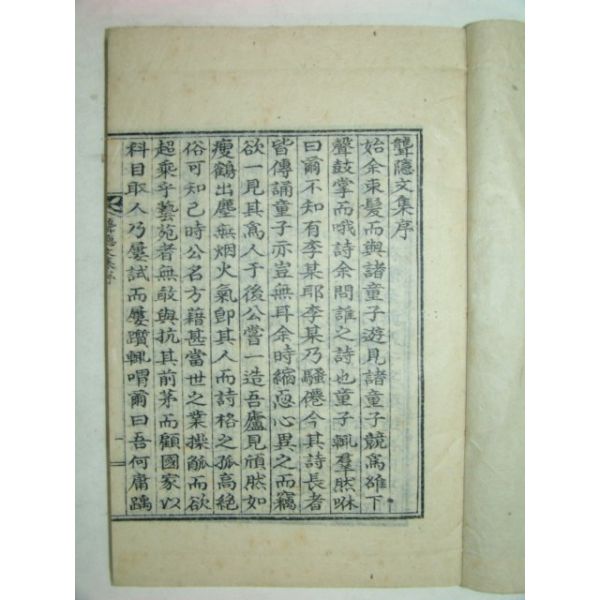 聾隱文集序
始余束髮而與諸童子遊見諸童子競爲雅下
聲鼓掌而哦詩余問誰之詩也童子輒羣然咻
曰爾不知有李某耶李某乃騷僊今其詩長者
皆傳誦童子亦豈無耳余時縮恧心異之而竊
欲一見其爲人于後公嘗一造吾廬見頎然如
瘦鶴出塵無烟火氣卽其人而詩格之孤高絶
俗可知已時公名方藉甚當世之業操觚而欲
超乘乎藝苑者無敢與抗其前茅而顧國家以
科目取人乃屢試而屢躓輒喟爾曰吾何庸踽
聾隱文集序
一